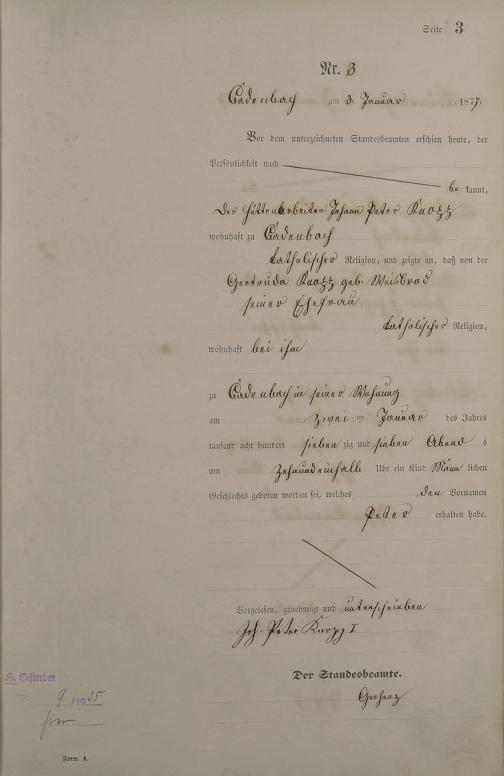 Seite 3
Nr. 3
Cadenbach am 3 Januar 1877.
Vor dem unterzeichneten Standesbeamten erschien heute, der
Persönlichkeit nach
be kannt,
der Hüttenarbeiter Johann Peter Knopp
wohnhaft zu Cadenbach
katholischer Religion, und zeigte an, daß von der
Gertruda Knopp geb. Weisbrod
seiner Ehefrau
katholischer Religion,
wohnhaft bei ihm
zu Cadenbach in seiner Wohnung
am zwei ten Januar des Jahres
tausend acht hundert sieben zig und sieben Abend s
um zehnundeinhalb Uhr ein Kind männ lichen
Geschlechts geboren worden sei, welches den Vornamen
Peter erhalten habe.
Vorgelesen, genehmigt und unterschrieben
Joh. Peter Knopp I
Der Standesbeamte.
Gerharz
Gestorben
9 / 1935
hier
Form. A.